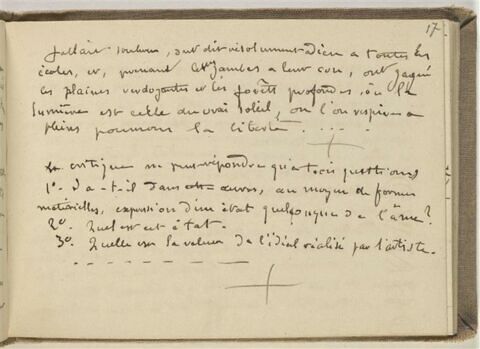 17
fallait soutenir, ont dit résolument adieu à toutes les
écoles, et, prenant les jambes à leur cou, ont gagné
les plaines verdoyantes et les forêts profondes, où la
lumière est celle du vrai soleil, où l'on respire à
pleins poumons la liberté. . . . .
La critique ne peut répondre qu'à trois questions
1º. Y a-t-il dans cette œuvre, au moyen de formes
matérielles, expression d'un état quelconque de l'âme?
2º. Quel est cet état.
3º. Quelle est la valeur de l'idéal réalisé par l'artiste.